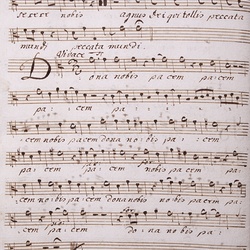 sereri nobis agnus dei qui tollis peccata
mundi peccata mundi.
Vivace
Dona nobis pacem pacem
pacem pacem
cem nobis pacem dona nobis pa cem
pacem pacem nobis pa
cem nobis pacem dona nobis pa cem
pacem pacem dona nobis
pacem do na nobis pa